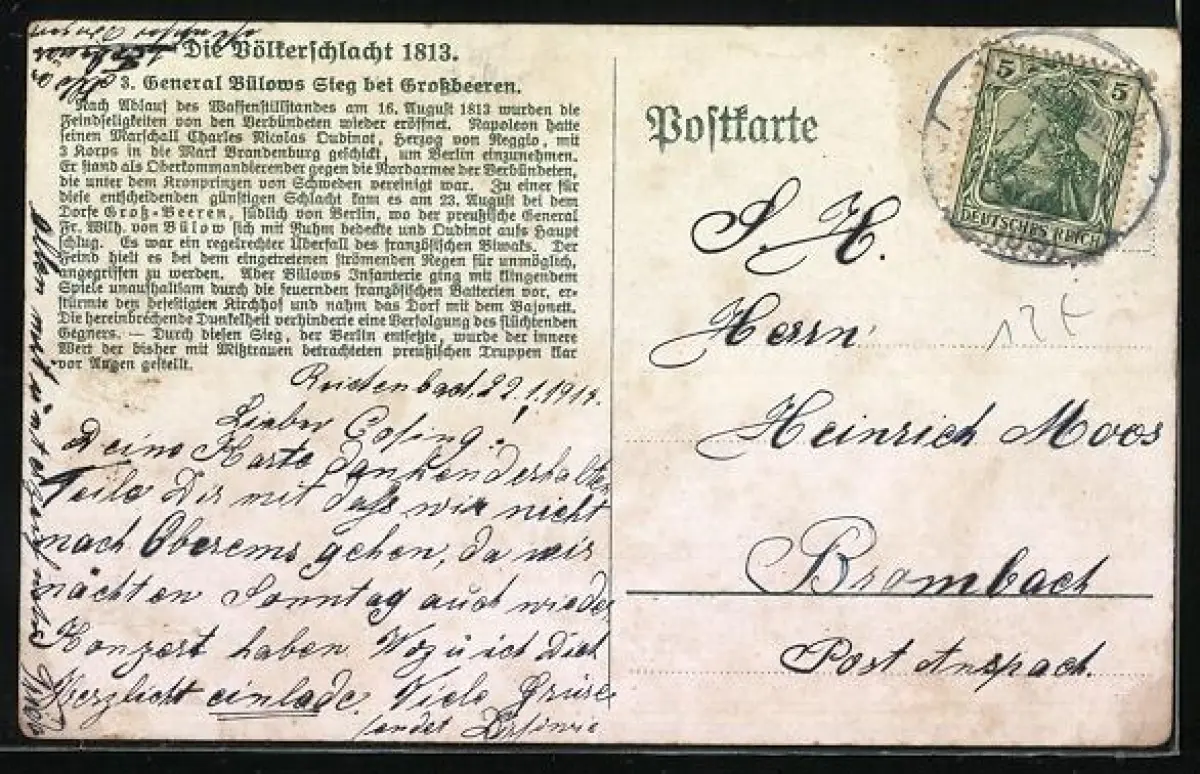 Die Völkerschlacht 1813.
3. General Bülows Sieg bei Großbeeren.
Nach Ablauf des Waffenstillstandes am 16. August 1813 wurden die
Feindseligkeiten von den Verbündeten wieder eröffnet. Napoleon hatte
seinen Marschall Charles Nicolas Oudinot, Herzog von Reggio, mit
3 Korps in die Mark Brandenburg geschickt, um Berlin einzunehmen.
Er stand als Oberkommandierender gegen die Nordarmee der Verbündeten,
die unter dem Kronprinzen von Schweden vereinigt war. Zu einer für
diese entscheidenden günstigen Schlacht kam es am 23. August bei dem
Dorfe Groß-Beeren, südlich von Berlin, wo der preußische General
Fr. Wilh. von Bülow sich mit Ruhm bedeckte und Oudinot aufs Haupt
schlug. Es war ein regelrechter Überfall des französischen Biwaks. Der
Feind hielt es bei dem eingetretenen strömenden Regen für unmöglich,
angegriffen zu werden. Aber Bülows Infanterie ging mit klingendem
Spiele unaufhaltsam durch die feuernden französischen Batterien vor, er-
stürmte den befestigten Kirchhof und nahm das Dorf mit dem Bajonett.
Die hereinbrechende Dunkelheit verhinderte eine Verfolgung des flüchtenden
Gegners. — Durch diesen Sieg, der Berlin entsetzte, wurde der innere
Wert der bisher mit Mißtrauen betrachteten preußischen Truppen klar
vor Augen gestellt.
22.1.1914.
Lieber
Deine Karte dankend erhalten
Teile Dir mit daß wir nicht
nach Oberems gehen, da wir
nächten Sonntag auch wieder
Konzert haben. Wozu ich Dich
Herzlicht einlade. Viele Grüse
sendet
Postkarte
5 5
DEUTSCHES REICH
S. H.
Herrn
Heinrich Moos
Brombach
Post Anspach.